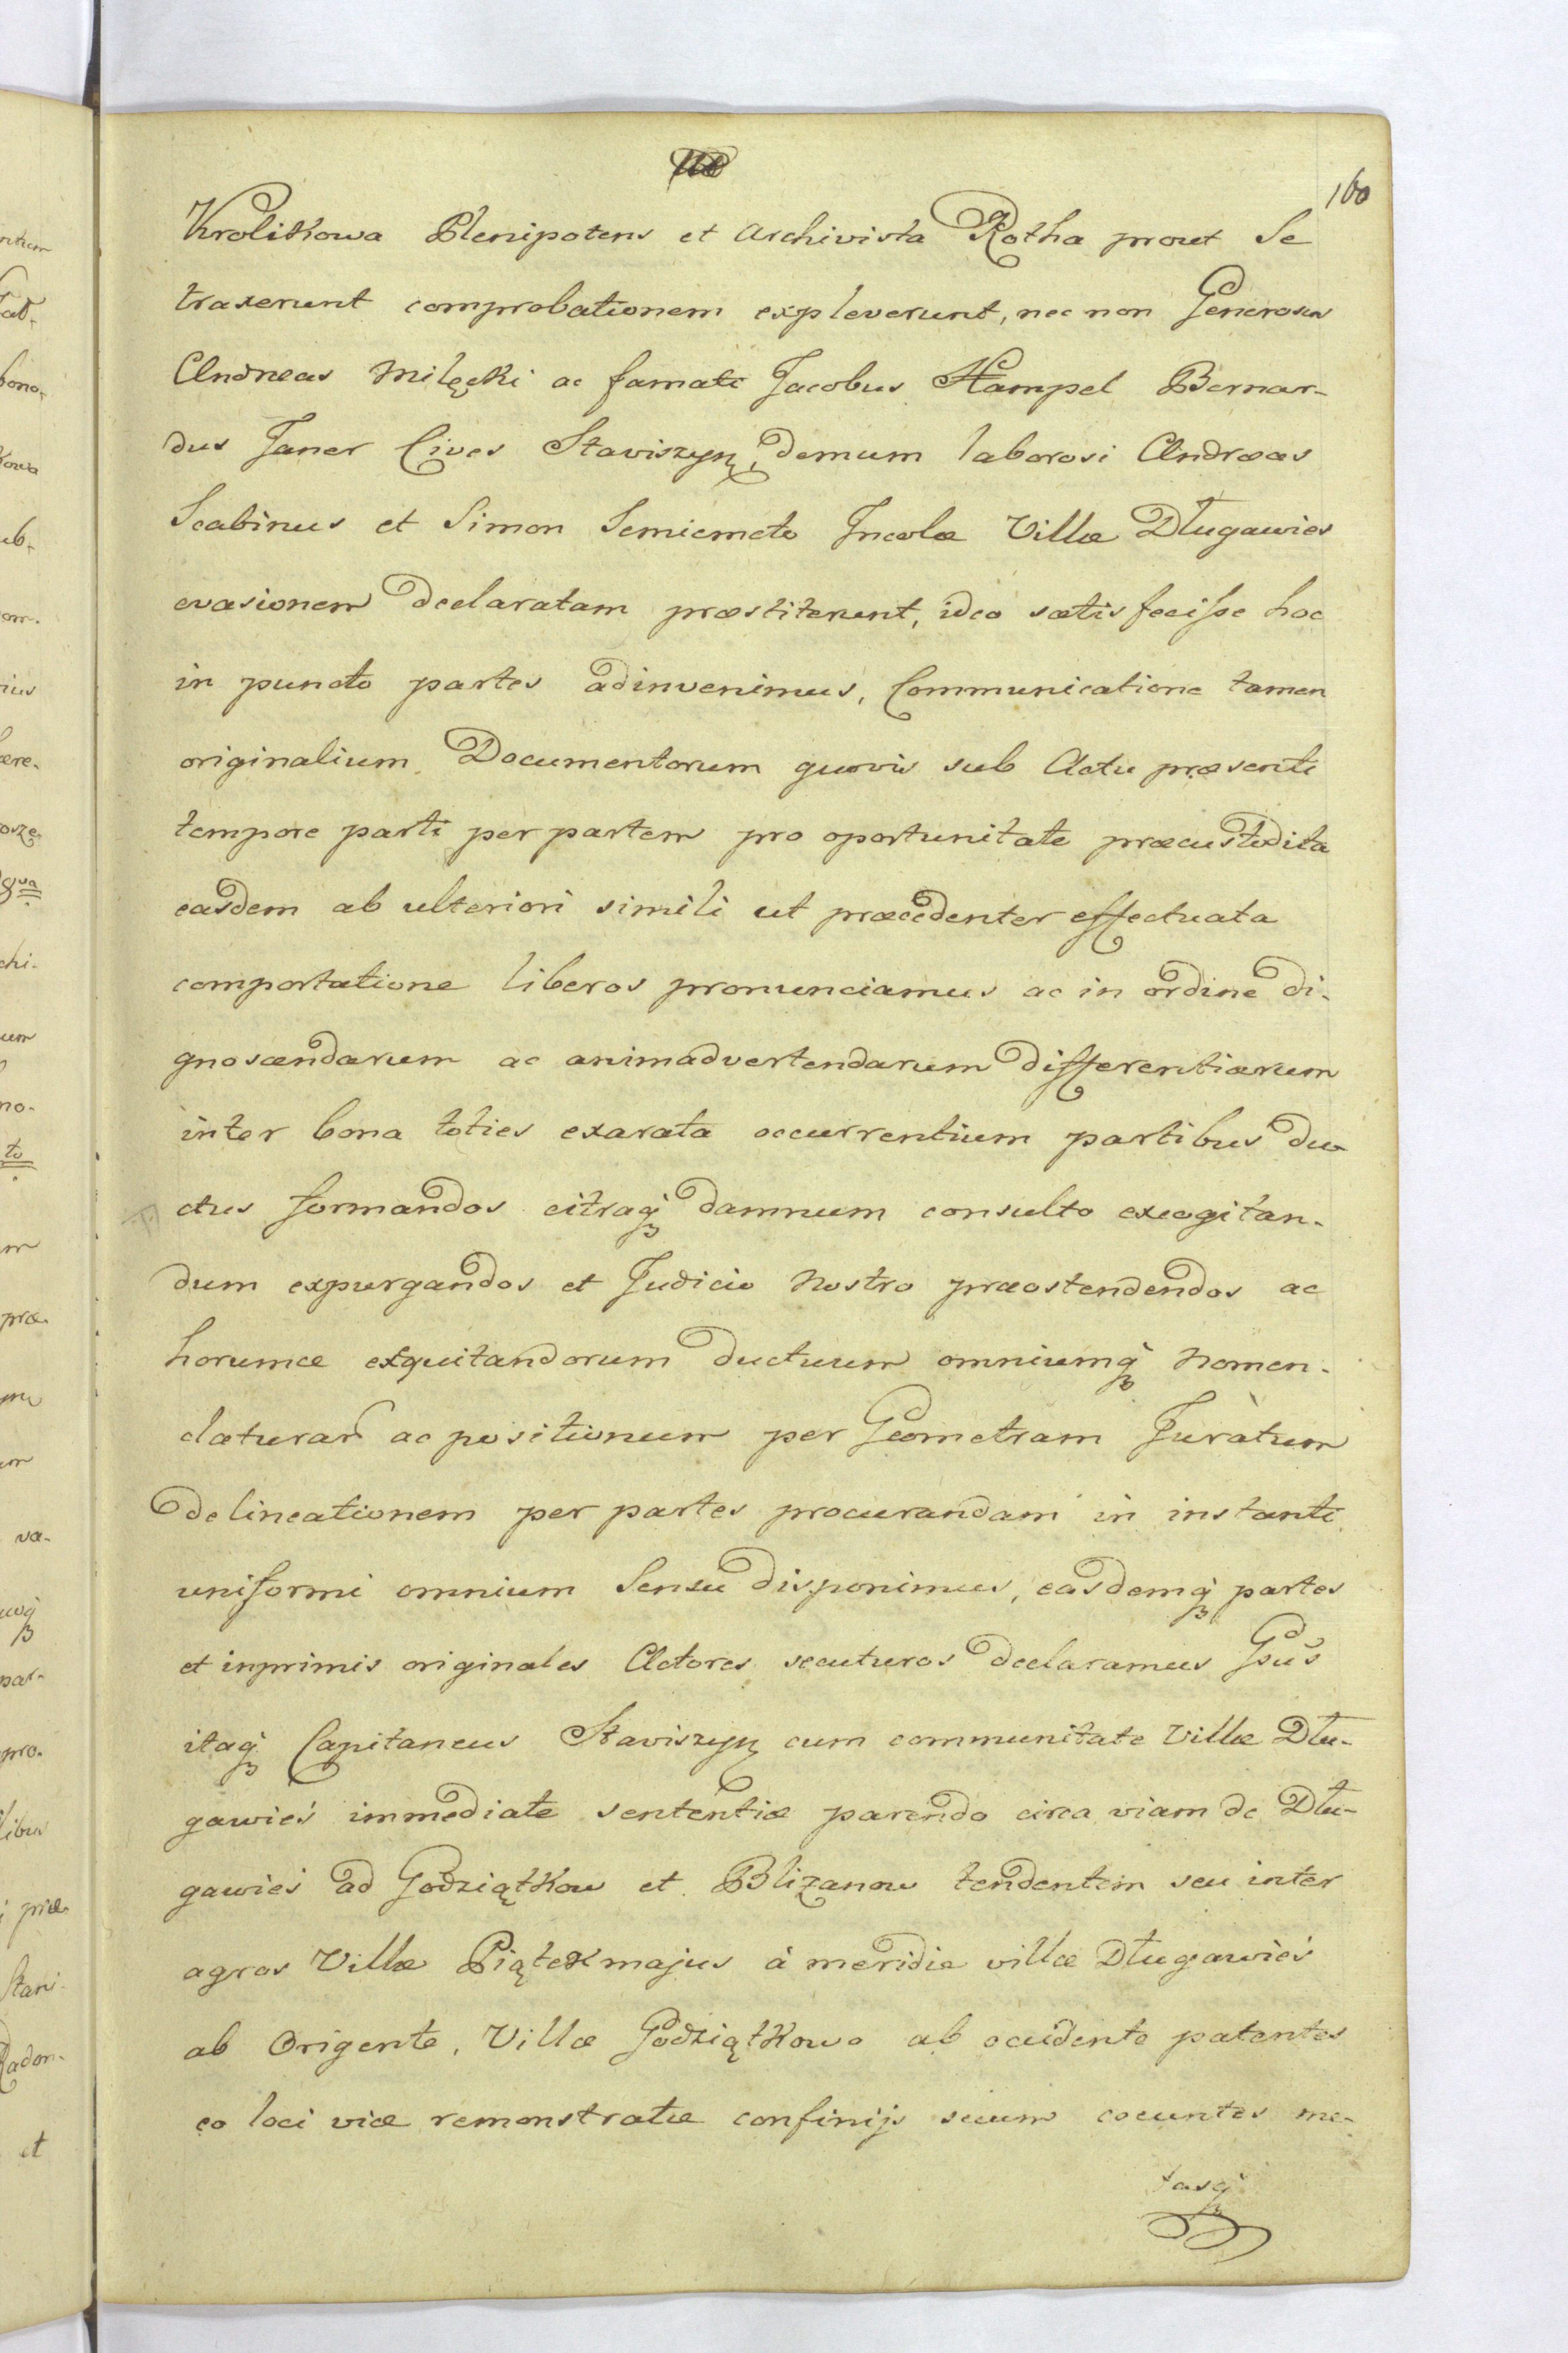 160
Krolikowa Plenipotens et Archivista Rotha prout se
traxerunt comprobationem expleverunt, nec non Generosus
Andreas Milęcki ac famati Jacobus Hampel Bernar-
dus Janer Cives Staviszyn, demum laboriosi Andreas
Scabinus et Simon Semicmeto Incolæ Villæ Długawies
evasionem declaratam præstiterunt, ideo satisfecisse hoc
in puncto partes adinvenimus, Communicatione tamen
originalium Documentorum quovis sub Actu præsenti
tempore parti per partem pro oportunitate præcustodita
easdem ab ulteriori simili ut præcedenter effectuata
comportatione liberos pronunciamus ac in ordine di-
gnoscendarum ac animadvertendarum differentiarum
inter bona toties exarata occurrentium partibus du-
ctus formandos citraq damnum consulto excogitan-
dum expurgandos et Judicio Nostro præostendendos ac
horumce exquitandorum ductuum omniumq Nomen-
claturar ac positionum per Geometram Juratum
delineationem per partes procurandam in instanti
uniformi omnium Sensu disponimus, easdemq partes
et inprimis originales Actores secuturos declaramus Gsus
itaq Capitaneus Staviszyn cum communitate Villæ Dłu-
gawieś immediate sententiæ parendo circa viam de Dłu-
gawieś ad Godziątkow et Blizanow tendentem seu inter
agros Villæ Piątek majus à meridie villæ Długawieś
ab Origente, Villæ Godziątkowo ab occidente patentes
eo loci viæ remonstratæ confinijs secum coeuntes me-
tasq